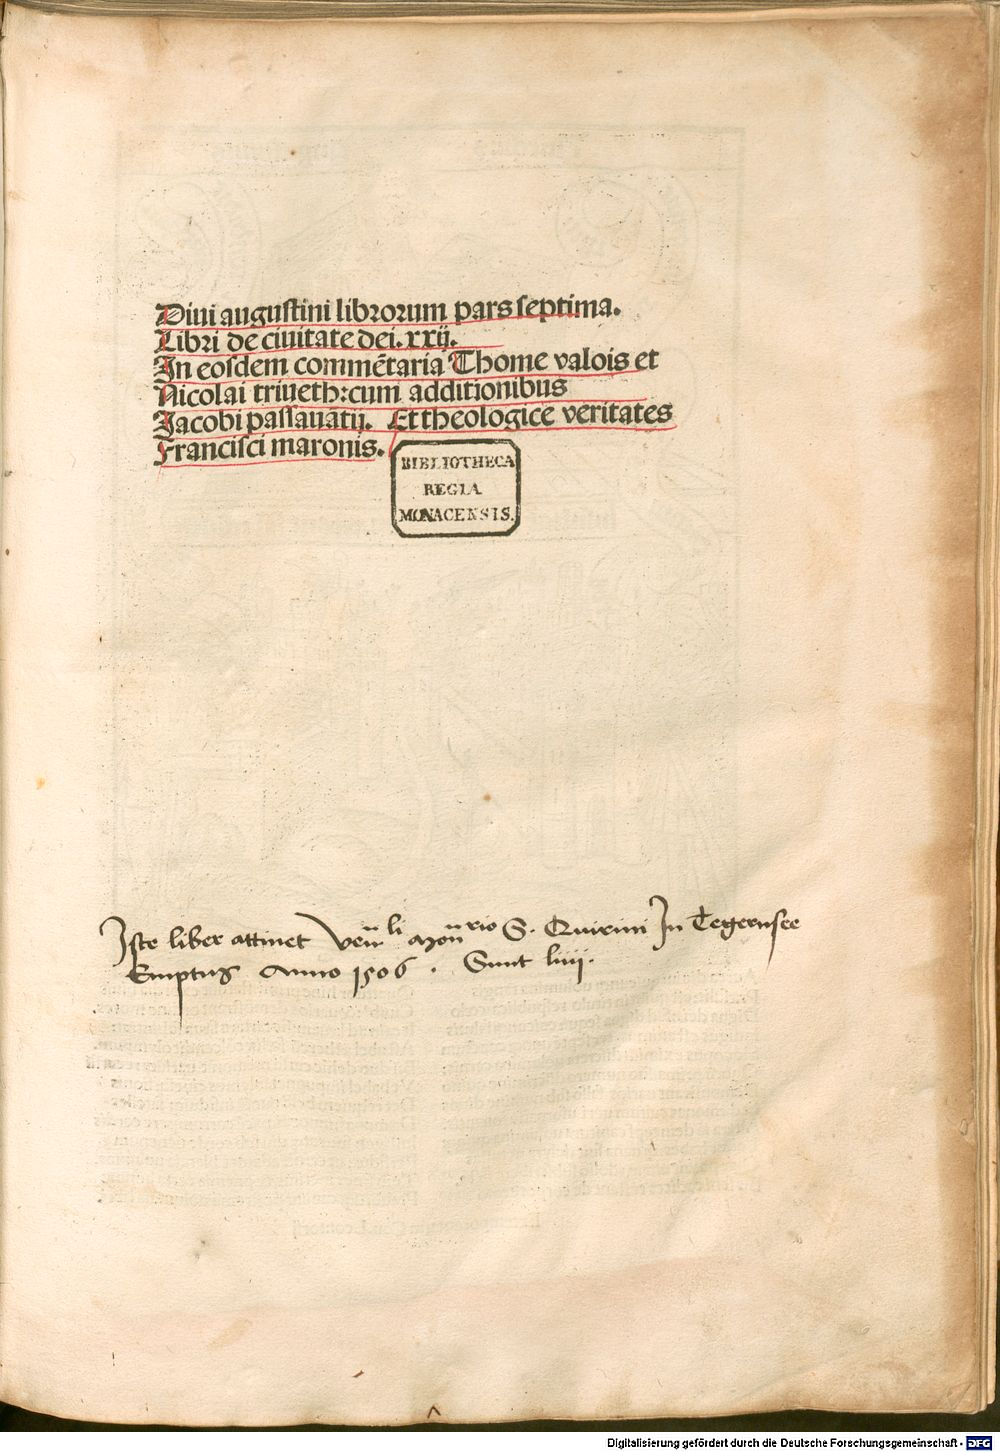 Diui augustini librorum pars septima.
Libri de ciuitate dei. xxij.
In eosdem commētaria Thome valois et
Nicolai triueth: cum additionibus
Jacobi passauātij. Et theologice veritates
Francisci maronis.
BIBLIOTHECA
REGIA
MONACENSIS.
Iste liber attinet S. Quirini In Tegernsee
Emptus Anno 1506. Sunt liiij.
Digitalisierung gefördert durch die Deutsche Forschungsgemeinschaft - DFG